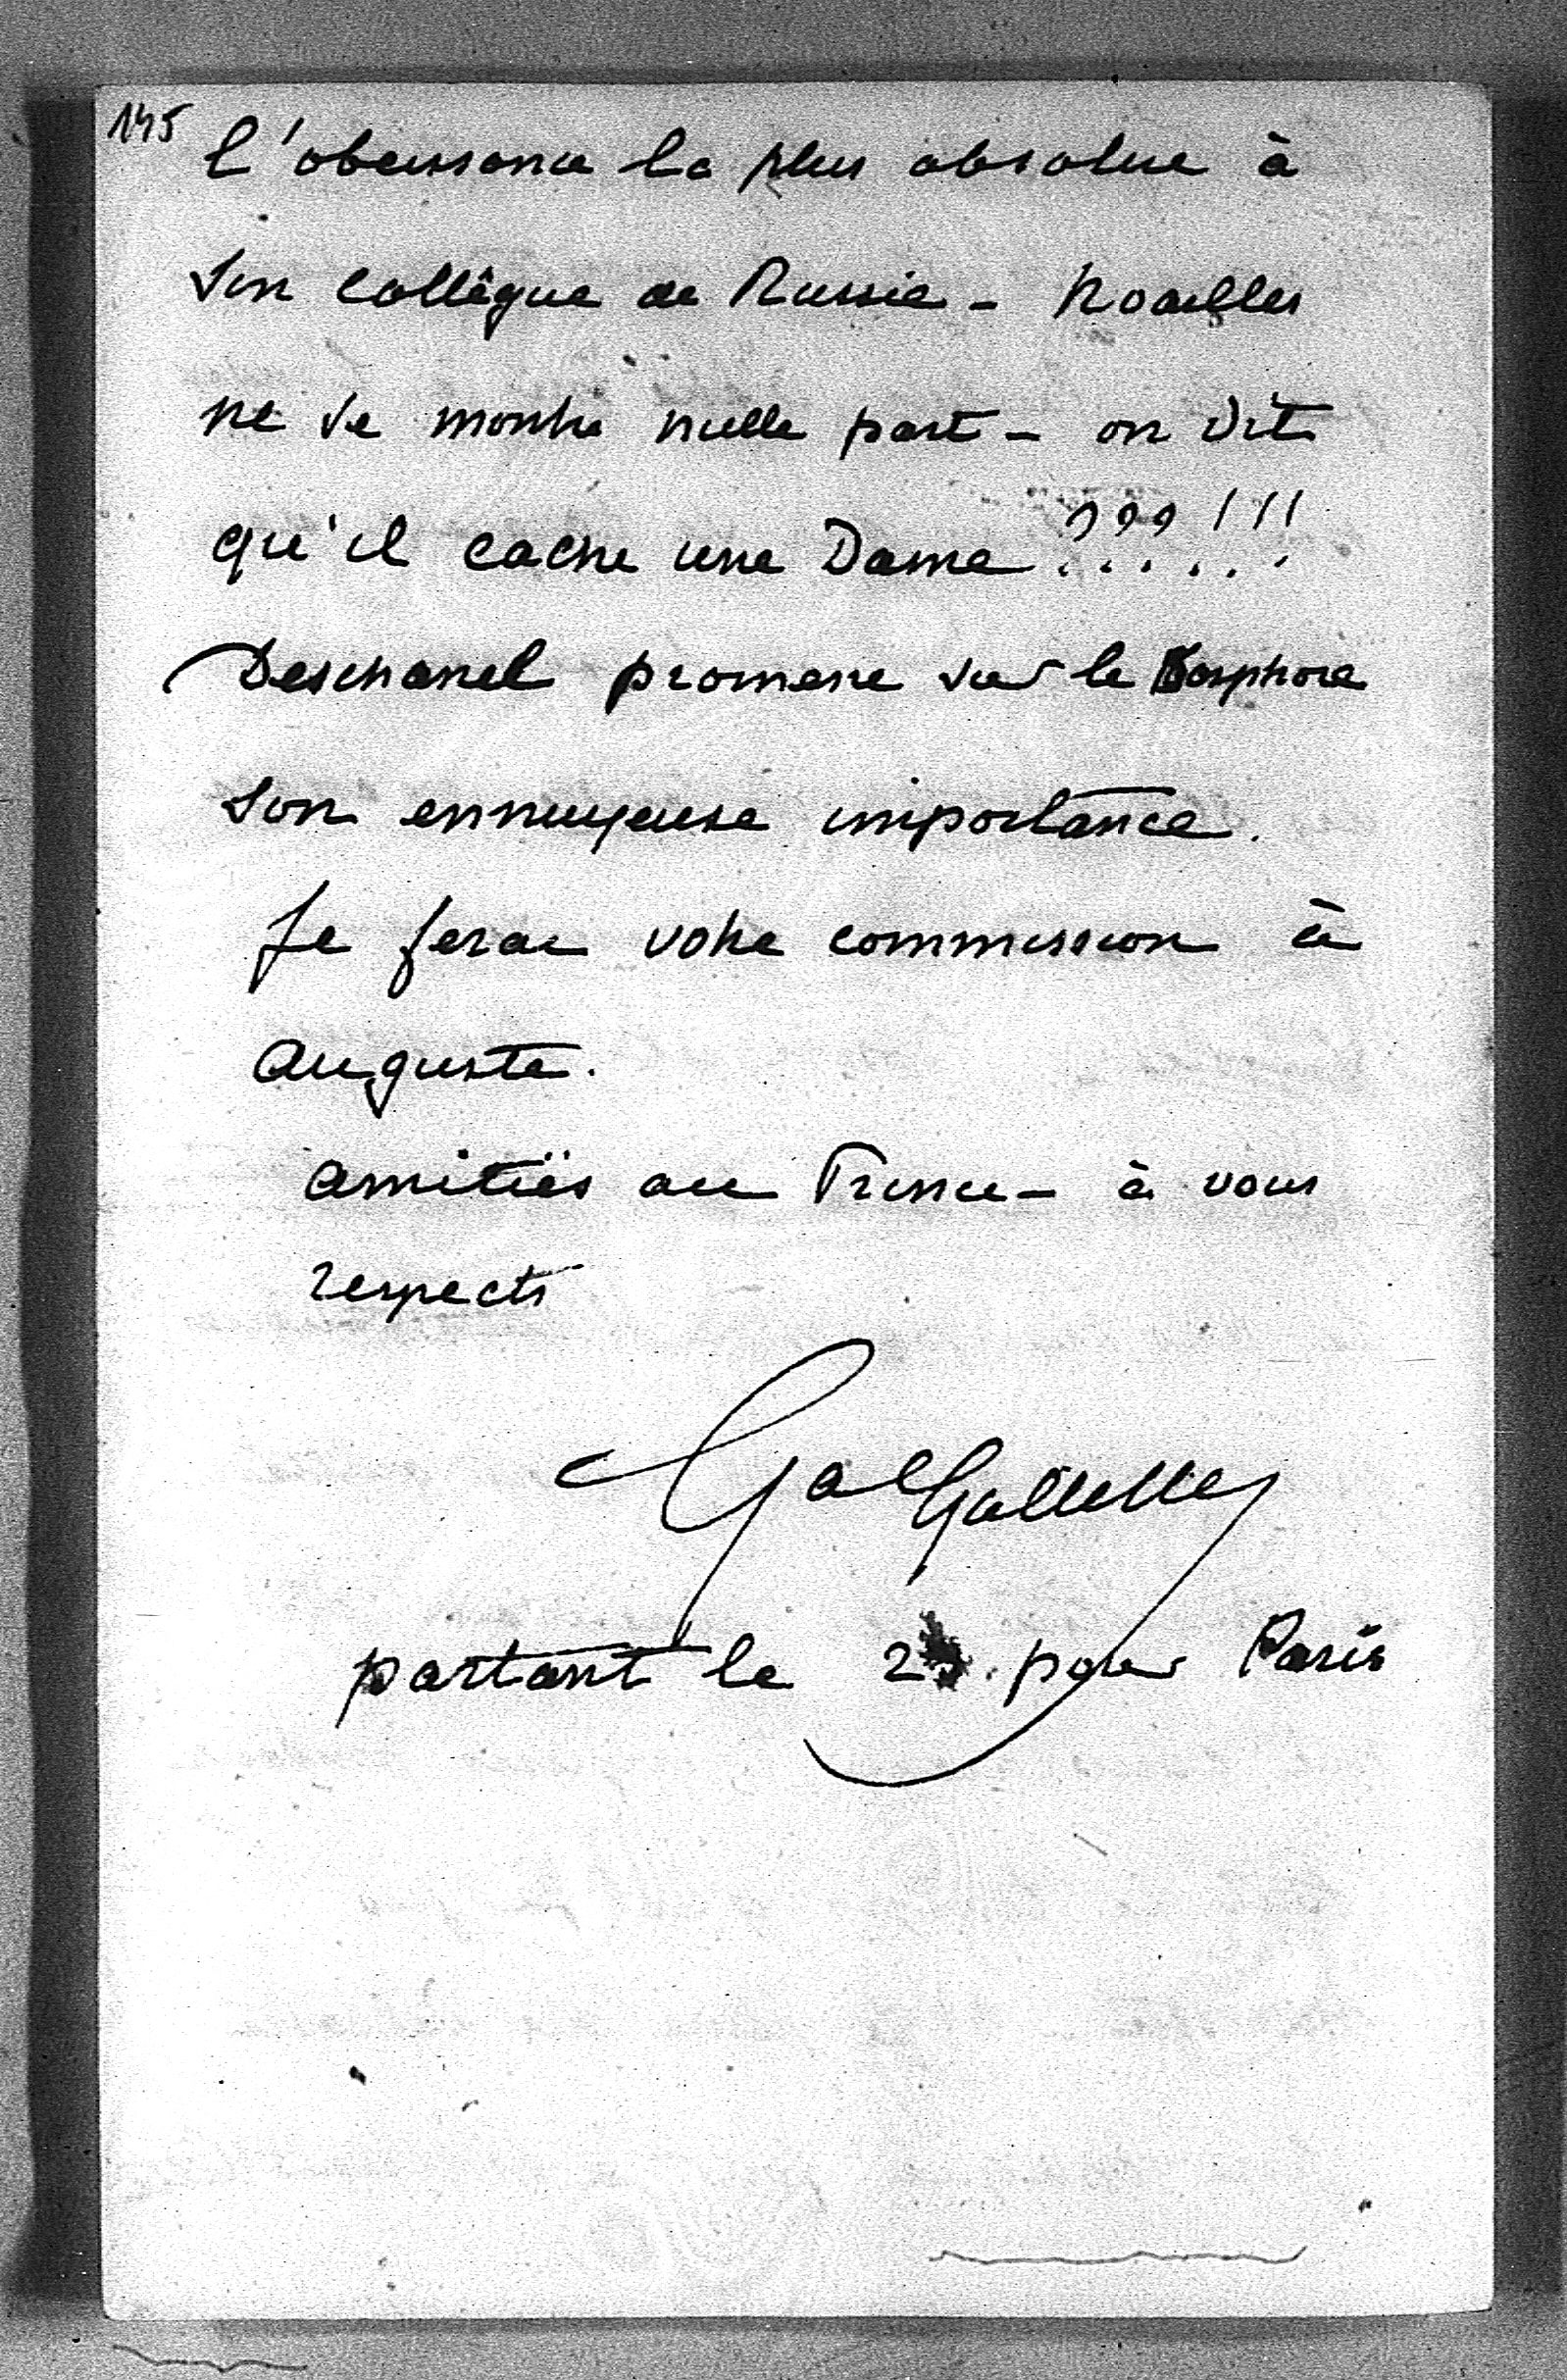 145
l'obeissance la plus absolue à
son collègue de Russie - Noailles
ne se montre nulle part - on dit
qu'il cache une Dame ???!!!
Deschanel promene sur le Bosphore
son ennuyeuse importance.
Je ferai votre commission à
auguste.
amitiés au Prince - à vous
respects
Gal Galliffet
partant le pour Paris